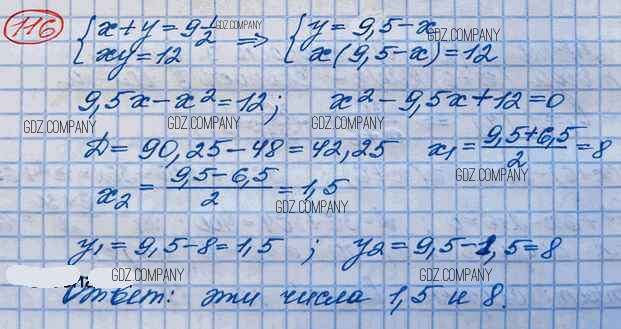 116 { x + y = 9 1/2 GDZ.COMPANY => { y = 9,5 - x GDZ.COMPANY
xy = 12 x(9,5 - x) = 12
9,5x - x² = 12; x² - 9,5x + 12 = 0
GDZ.COMPANY GDZ.COMPANY GDZ.COMPANY
D = 90,25 - 48 = 42,25 x₁ = (9,5 + 6,5)/2 = 8
GDZ.COMPANY
x₂ = (9,5 - 6,5)/2 = 1,5
GDZ.COMPANY
y₁ = 9,5 - 8 = 1,5 ; y₂ = 9,5 - 1,5 = 8
GDZ.COMPANY GDZ.COMPANY
Ответ: эти числа 1,5 и 8.